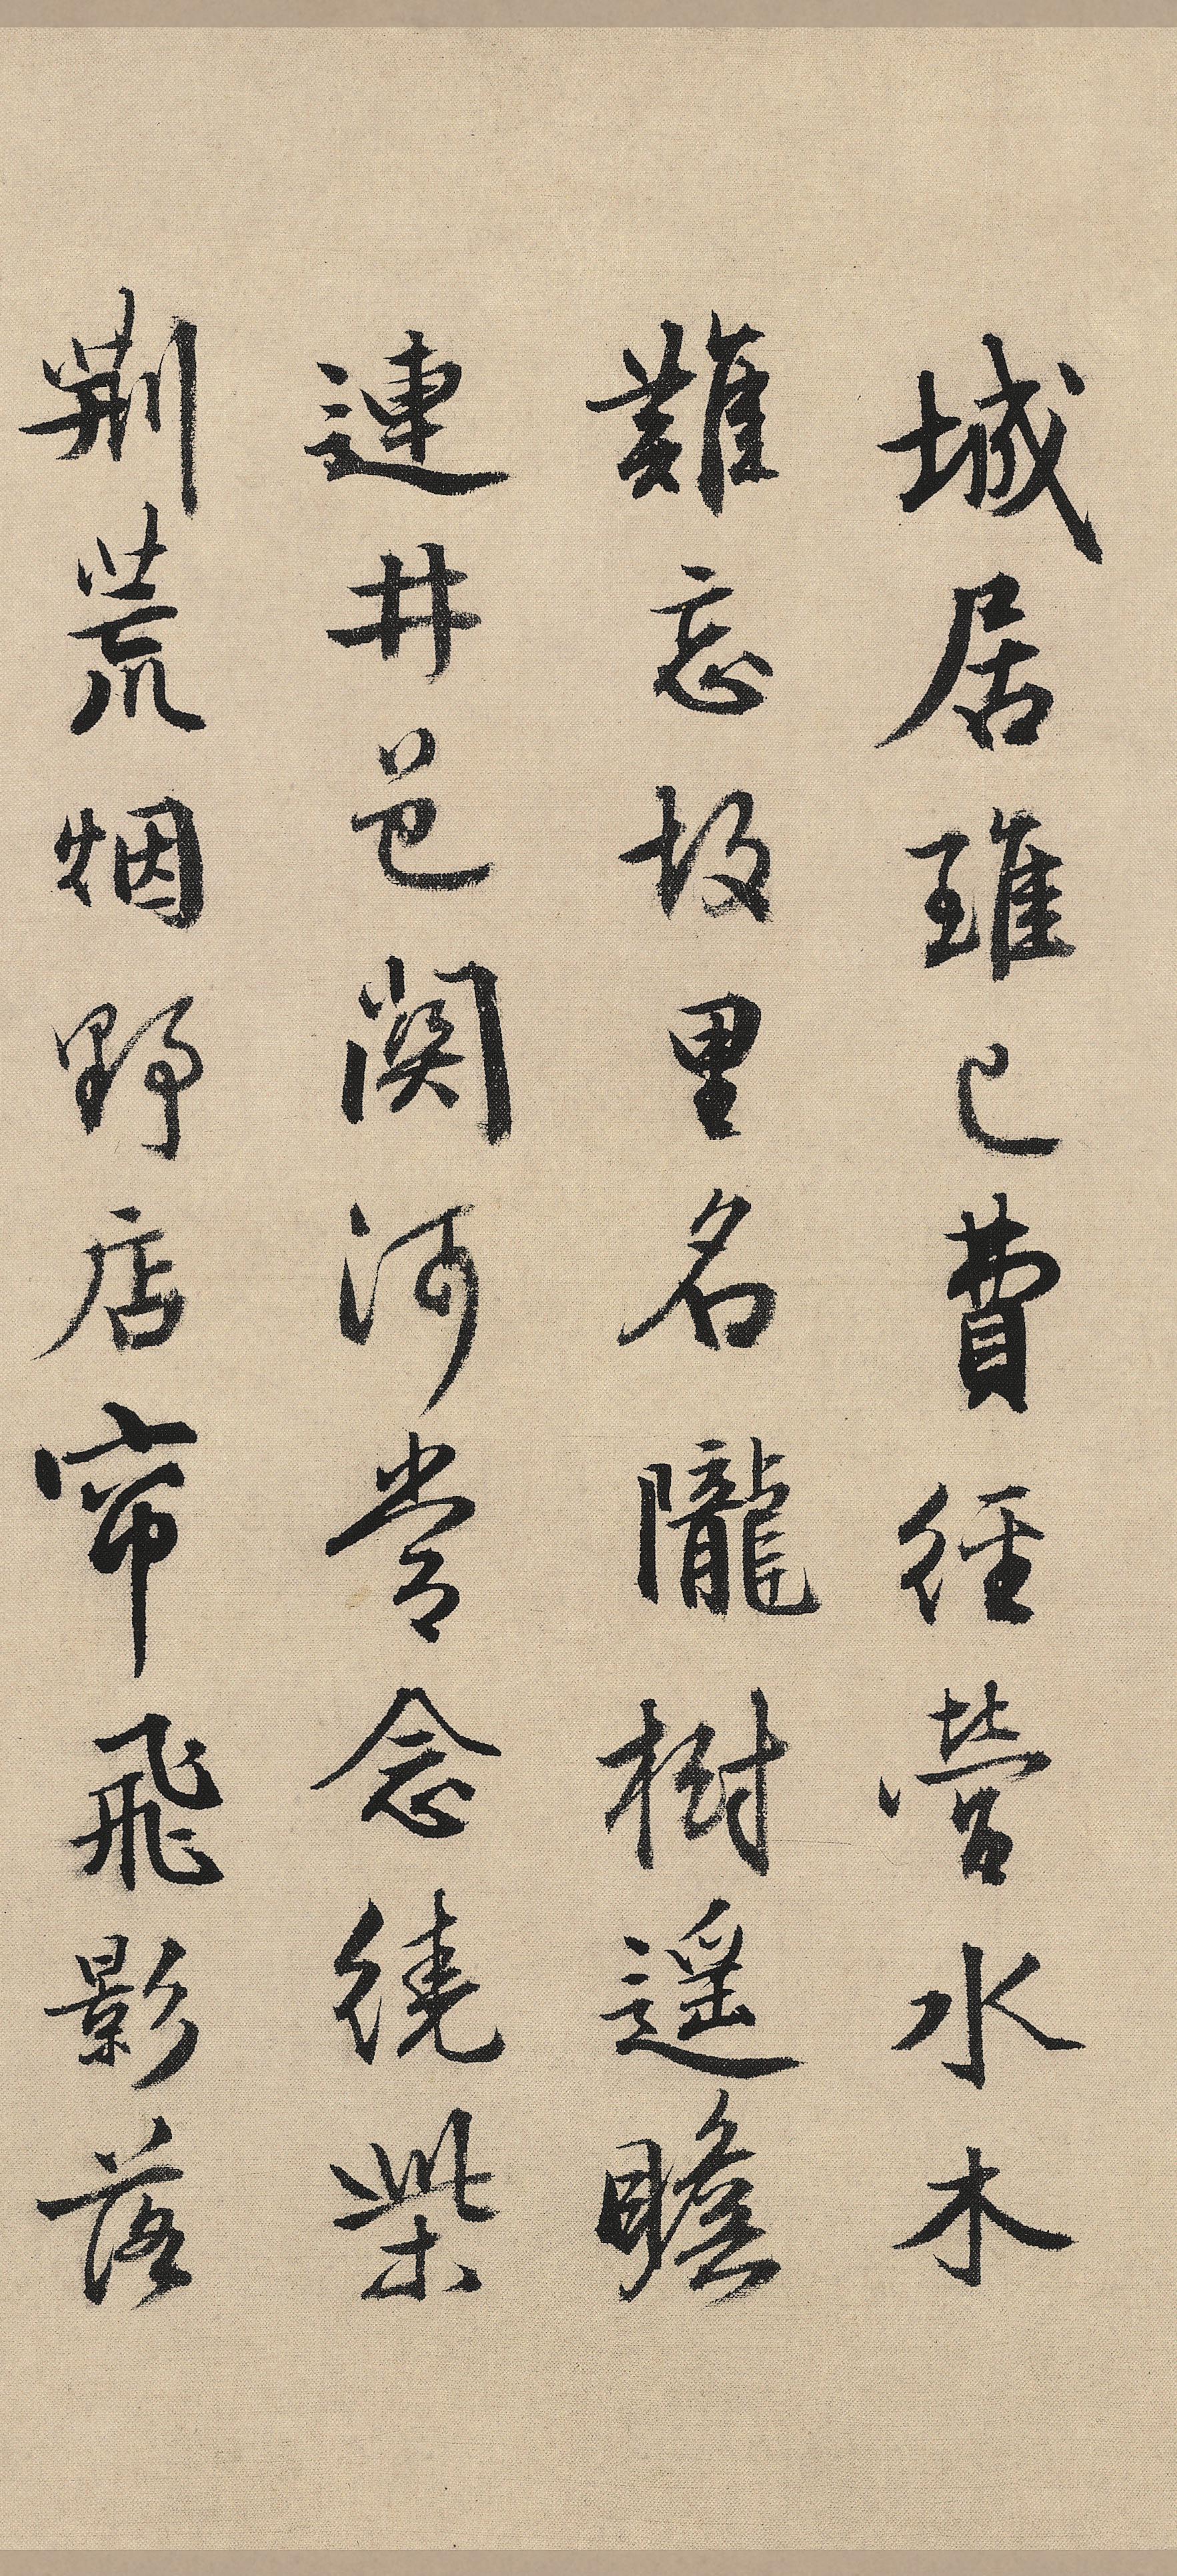 城居雖已費経營水木
難忘故里名隴樹遥瞻
連井邑関河常念繞柴
荆荒烟野店帘飛影落